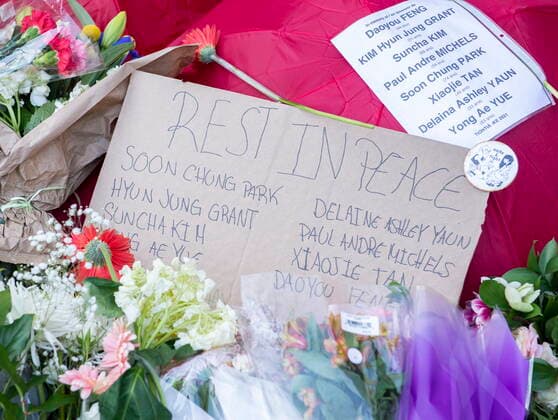 REST IN PEACE
SOON CHUNG PARK
HYUN JUNG GRANT
SUNCHA KIM
AE YUE
DELAINE ASHLEY YAUN
PAUL ANDRE MICHELS
XIAOJIE TAN
DAOYOU FEN
Daoyou FENG
KIM Hyun Jung GRANT
Suncha KIM
Paul Andre MICHELS
Soon Chung PARK
Xiaojie TAN
Delaina Ashley YAUN
Yong Ae YUE